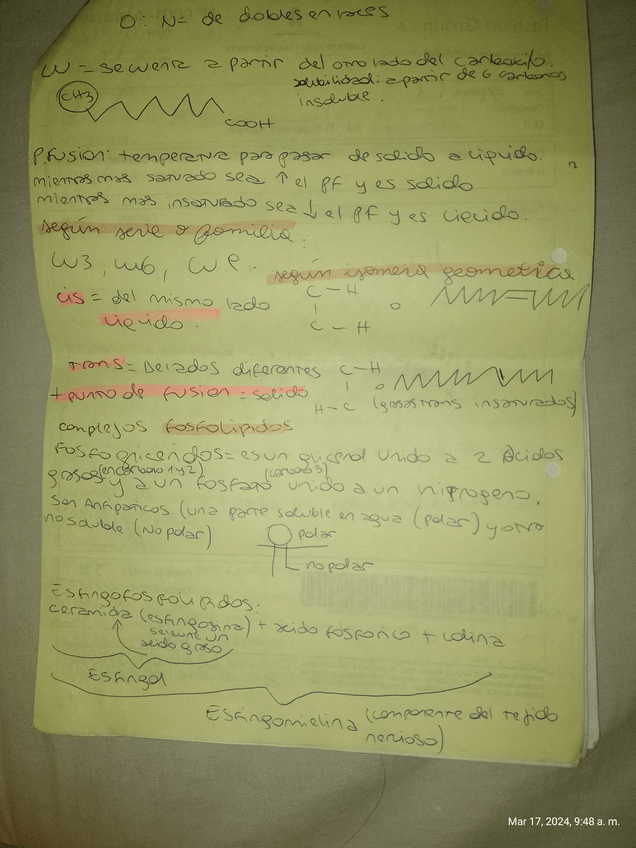 D: Nº de dobles enlaces
W = se cuenta a partir del otro lado del carboxilo.
solubilidad: a partir de 6 carbonos
insoluble.
CH3
COOH
P. Fusion: temperatura para pasar de solido a liquido.
mientras mas saturado sea ↑ el pf y es solido
mientras mas insaturado sea ↓ el pf y es liquido.
según serie o familia:
W3, W6, W9.
según isomeria geometrica
cis = del mismo lado
C - H
liquido.
C - H
Trans = De lados diferentes
C - H
+ punto de fusion = solido
H - C (grasas trans insaturados)
complejos fosfolipidos
Fosfogliceridos = es un glicerol unido a 2 Acidos
(en carbono 1 y 2) (carbono 3)
grasos y a un fosfato unido a un nitrogeno.
Son Anfipaticos (una parte soluble en agua (polar) y otro
no soluble (No polar)
polar
no polar
Esfingofosfolipidos:
ceramida (esfingosina) + acido fosforico + colina
se le une un
acido graso
Esfingol
Esfingomielina (componente del tejido
nervioso)
Mar 17, 2024, 9:48 a. m.